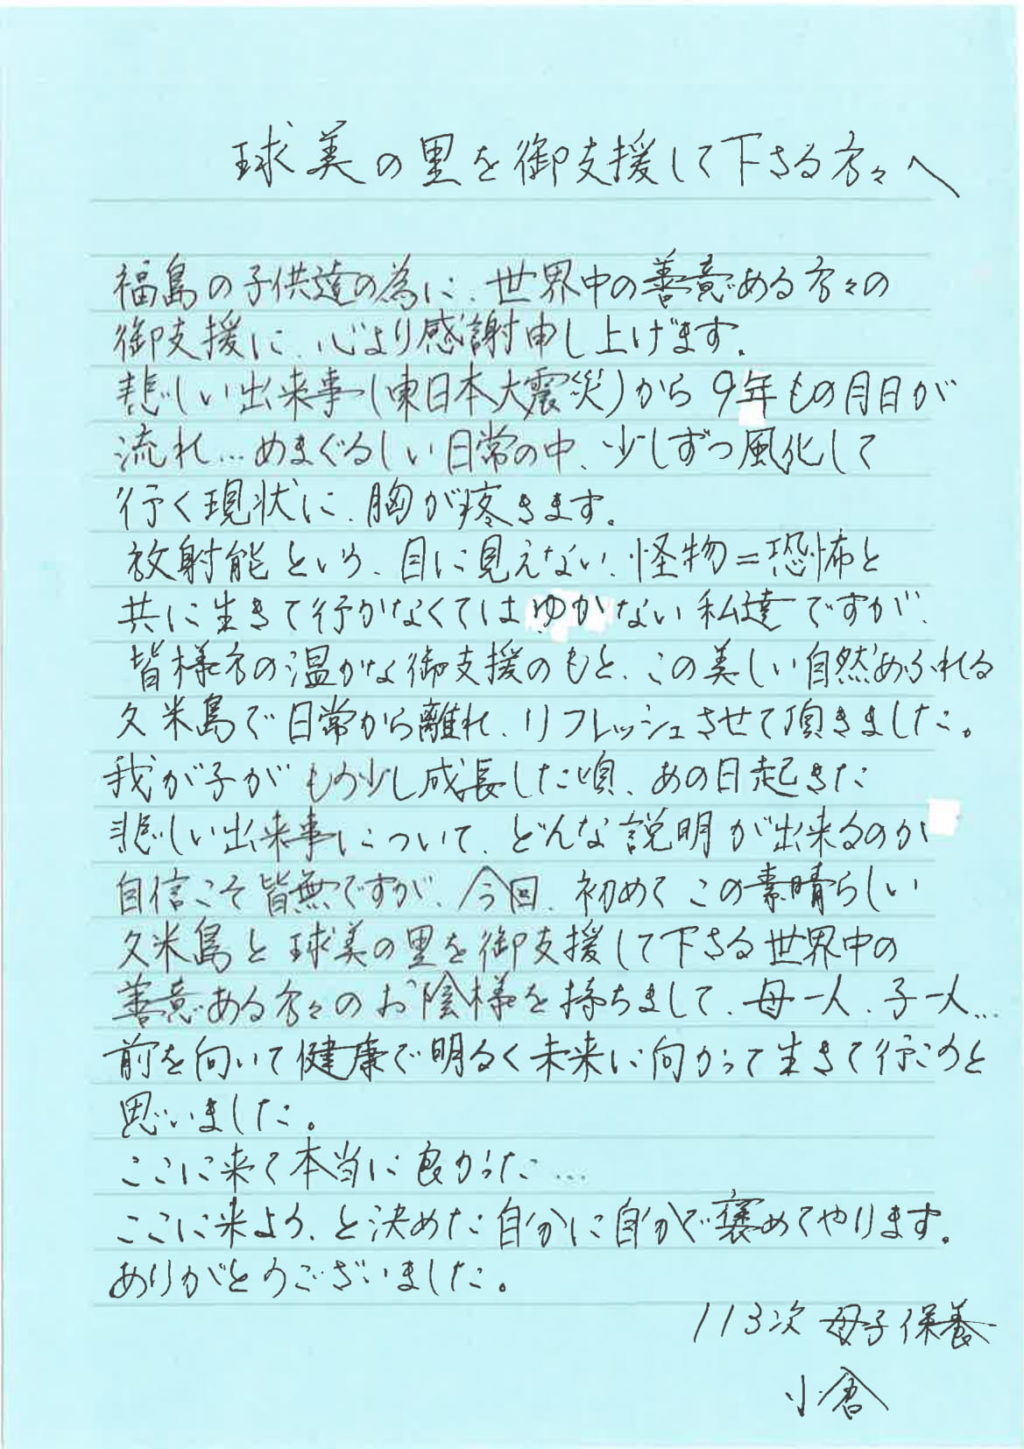 球美の里を御支援して下さる方々へ
福島の子供達の為に、世界中の善意ある方々の
御支援に、心より感謝申し上げます。
悲しい出来事(東日本大震災)から9年もの月日が
流れ…めまぐるしい日常の中、少しずつ風化して
行く現状に、胸が疼きます。
放射能という、目に見えない、怪物=恐怖と
共に生きて行かなくてはゆかない私達ですが、
皆様方の温かな御支援のもと、この美しい自然あふれる
久米島で日常から離れ、リフレッシュさせて頂きました。
我が子がもう少し成長した頃、あの日起きた
悲しい出来事について、どんな説明が出来るのか
自信こそ皆無ですが、今回、初めてこの素晴らしい
久米島と球美の里を御支援して下さる世界中の
善意ある方々のお陰様を持ちまして、母一人、子一人…
前を向いて健康で明るく未来に向かって生きて行こうと
思いました。
ここに来て本当に良かった…
ここに来よう、と決めた自分に自分で褒めてやります。
ありがとうございました。
113次 母子保養
小倉